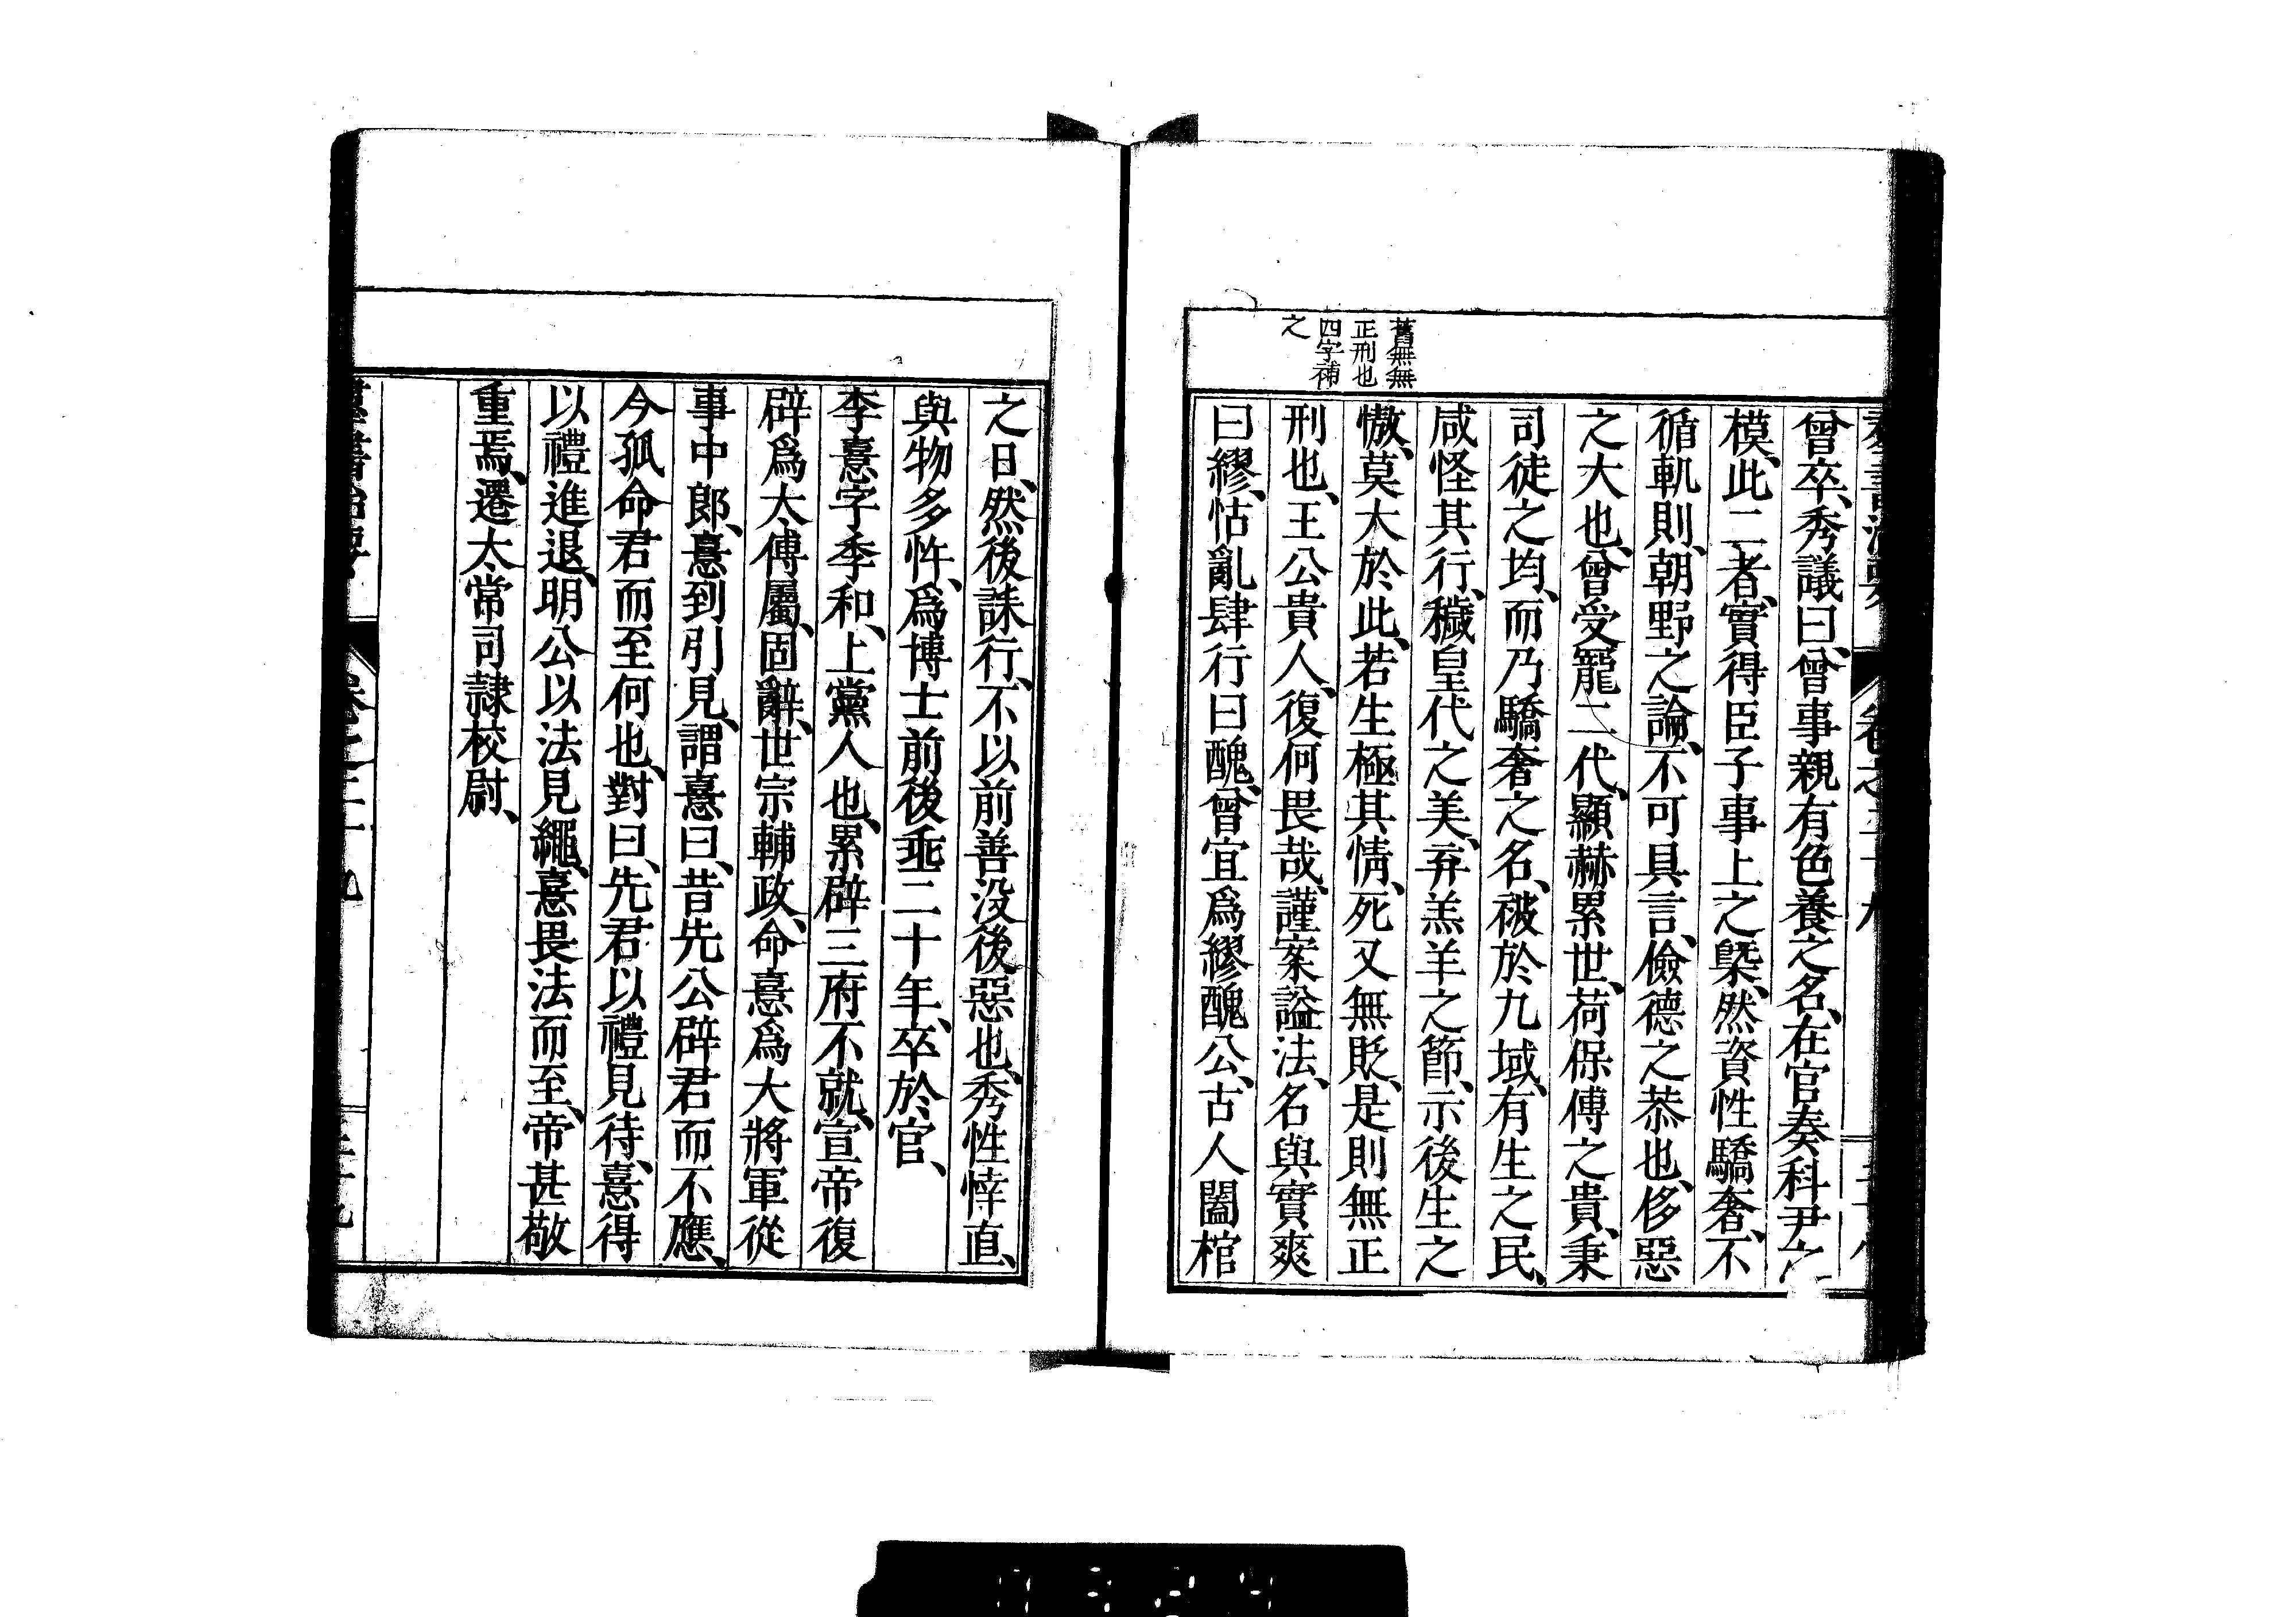 舊無無
正刑也
四字補
之
曾卒、秀議曰、曾事親有色養之名、在官奏科尹之
模、此二者、實得臣子事上之槩、然資性驕奢、不
循軌則、朝野之論、不可具言、儉德之恭也、侈惡
之大也、曾受寵二代、顯赫累世、荷保傅之貴、秉
司徒之均、而乃驕奢之名、被於九域、有生之民、
咸怪其行、穢皇代之美、弃羔羊之節、示後生之
慠、莫大於此、若生極其情、死又無貶、是則無正
刑也、王公貴人、復何畏哉、謹案謚法、名與實爽
曰繆、怙亂肆行曰醜、曾宜爲繆醜公、古人闔棺
之日、然後誄行、不以前善没後惡也、秀性悻直、
與物多忤、爲博士前後垂二十年、卒於官、
李憙字季和、上黨人也、累辟三府不就、宣帝復
辟爲太傅屬、固辭、世宗輔政、命憙爲大將軍從
事中郎、憙到引見、謂憙曰、昔先公辟君而不應、
今孤命君而至何也、對曰、先君以禮見待、憙得
以禮進退、明公以法見繩、憙畏法而至、帝甚敬
重焉、遷太常司隷校尉、